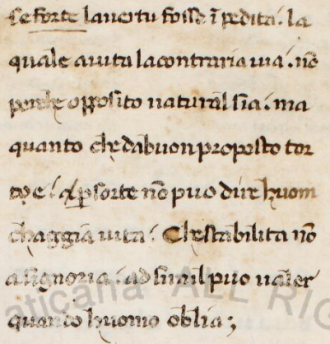 Se forte lauertu fosse ī pedita. la
quale aiuta lacontraria uia. nō
perche opposito natural sia. ma
quanto che dabuon proposto tor
to e. ꝑ sorte nō puo dire huom
chaggia uita. Che stabilita nō
asignoria. ad simil puo ualer
quando huomo oblia;
aticana ALL RIG